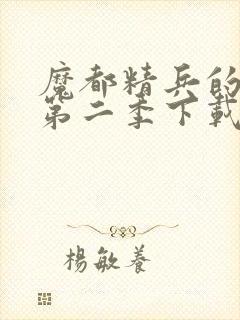 魔都精兵的
第二季下載
楊敏養